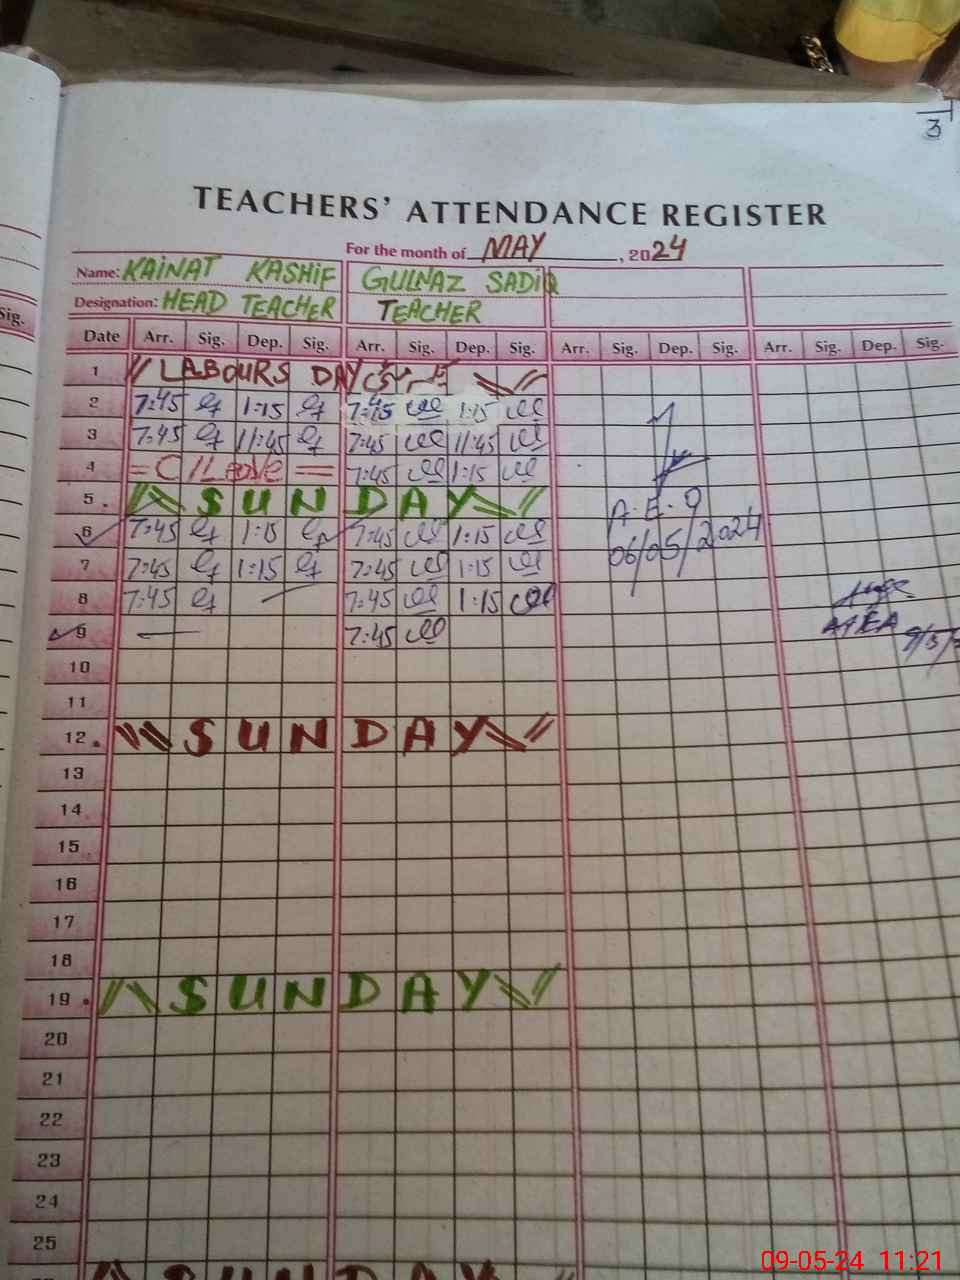 3
TEACHERS' ATTENDANCE REGISTER
For the month of MAY, 2024
Name: KAINAT KASHIF GULNAZ SADIQ
Designation: HEAD TEACHER TEACHER
Sig.
Date Arr. Sig. Dep. Sig. Arr. Sig. Dep. Sig. Arr. Sig. Dep. Sig. Arr. Sig. Dep. Sig.
1 LABOURS DAY
2 7:45 1:15 7:45 1:15
3 7:45 11:45 7:45 11:45
4 = C/Leave = 7:45 1:15
5 SUNDAY A.E.O
6 7:45 1:15 7:45 1:15 06/05/2024
7 7:45 1:15 7:45 1:15
8 7:45 — 7:45 1:15
9 — 7:45 9/5/
10
11
12 SUNDAY
13
14
15
16
17
18
19 SUNDAY
20
21
22
23
24
25
SUNDAY
09-05-24 11:21